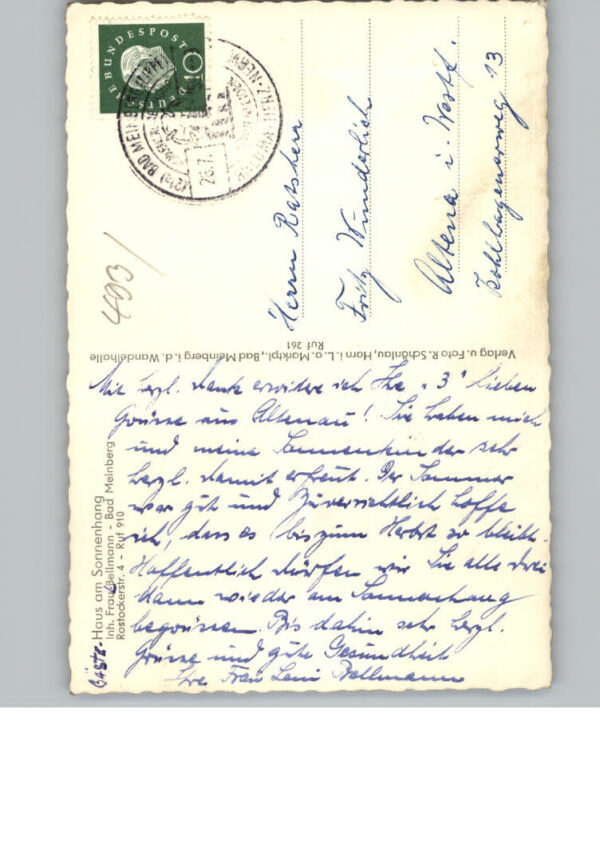 DEUTSCHE BUNDESPOST
10
(21a) BAD MEINBERG
HERZ-NERV
26.7.
Herrn Ratsherr
Fritz Wunderlich
Altena i. Westf.
Kohlhagenerweg 13
493/
Verlag u. Foto R. Schönlau, Horn i. L. a. Marktpl., Bad Meinberg i. d. Wandelhalle
Ruf 261
GÄSTE-Haus am Sonnenhang
Inh. Frau Bellmann - Bad Meinberg
Rostockerstr. 4 - Ruf 910
Mit herzl. Dank erwidere ich Ihre "3" lieben
Grüsse aus Altenau! Sie haben mich
und meine Sonnenkinder sehr
herzl. damit erfreut. Der Sommer
war gut und zuversichtlich hoffe
ich, dass es bis zum Herbst so bleibt.
Hoffentlich dürfen wir Sie alle drei
dann wieder am Sonnenhang
begrüssen. Bis dahin sehr herzl.
Grüsse und gute Gesundheit
Ihre Frau Leni Bellmann